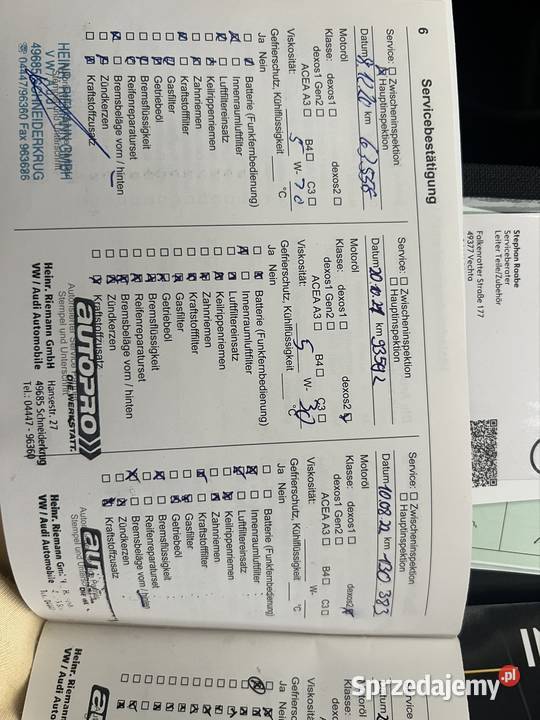 6
Servicebestätigung
Service: ☐ Zwischeninspektion
☒ Hauptinspektion
km 63556
Motoröl
Klasse: dexos1 ☐ dexos2 ☐
dexos1 Gen2 ☐
ACEA A3 ☐ B4 ☐ C3 ☐
Viskosität: 5 W-
Gefrierschutz, Kühlflüssigkeit °C
Ja Nein
Batterie (Funkfernbedienung)
Innenraumluftfilter
Luftfiltereinsatz
Keilrippenriemen
Zahnriemen
Kraftstofffilter
Gasfilter
Getriebeöl
Bremsflüssigkeit
Reifenreparaturset
Bremsbeläge vorn / hinten
Zündkerzen
Kraftstoffzusatz
HEINR. RIEMANN GMBH
VW
49685 SCHNEIDERKRUG
☎ 04447/96360 Fax 963686
Service: ☐ Zwischeninspektion
☐ Hauptinspektion
Datum 20.10.21 km 93592
Motoröl
Klasse: dexos1 ☐ dexos2 ☒
dexos1 Gen2 ☐
ACEA A3 ☐ B4 ☐ C3 ☐
Viskosität: 5 W- 30
Gefrierschutz, Kühlflüssigkeit °C
Ja Nein
Batterie (Funkfernbedienung)
Innenraumluftfilter
Luftfiltereinsatz
Keilrippenriemen
Zahnriemen
Kraftstofffilter
Gasfilter
Getriebeöl
Bremsflüssigkeit
Reifenreparaturset
Bremsbeläge vorn / hinten
Zündkerzen
Kraftstoffzusatz
Autorisierter Service
Stempel und Unterschrift
autoPRO
DIE WERKSTATT.
Heinr. Riemann GmbH Hansestr. 27
VW / Audi Automobile 49685 Schneiderkrug
Tel.: 04447 - 96360
Service: ☐ Zwischeninspektion
☐ Hauptinspektion
Datum 10.08.22 km 130 383
Motoröl
Klasse: dexos1 ☐ dexos2 ☒
dexos1 Gen2 ☐
ACEA A3 ☐ B4 ☐ C3 ☐
Viskosität: W-
Gefrierschutz, Kühlflüssigkeit °C
Ja Nein
Batterie (Funkfernbedienung)
Innenraumluftfilter
Luftfiltereinsatz
Keilrippenriemen
Zahnriemen
Kraftstofffilter
Gasfilter
Getriebeöl
Bremsflüssigkeit
Reifenreparaturset
Bremsbeläge vorn / hinten
Zündkerzen
Kraftstoffzusatz
Stempel und
Heinr. Riemann
VW / Audi Automobile
Service
Datum
Motoröl
Klasse:
Viskosität
Gefrierschutz
Ja Nein
Heinr. Riemann
VW / Audi
Stephan Raabe
Serviceberater
Leiter Teile/Zubehör
Falkenrotter Straße 177
49377 Vechta
Sprzedajemy.pl